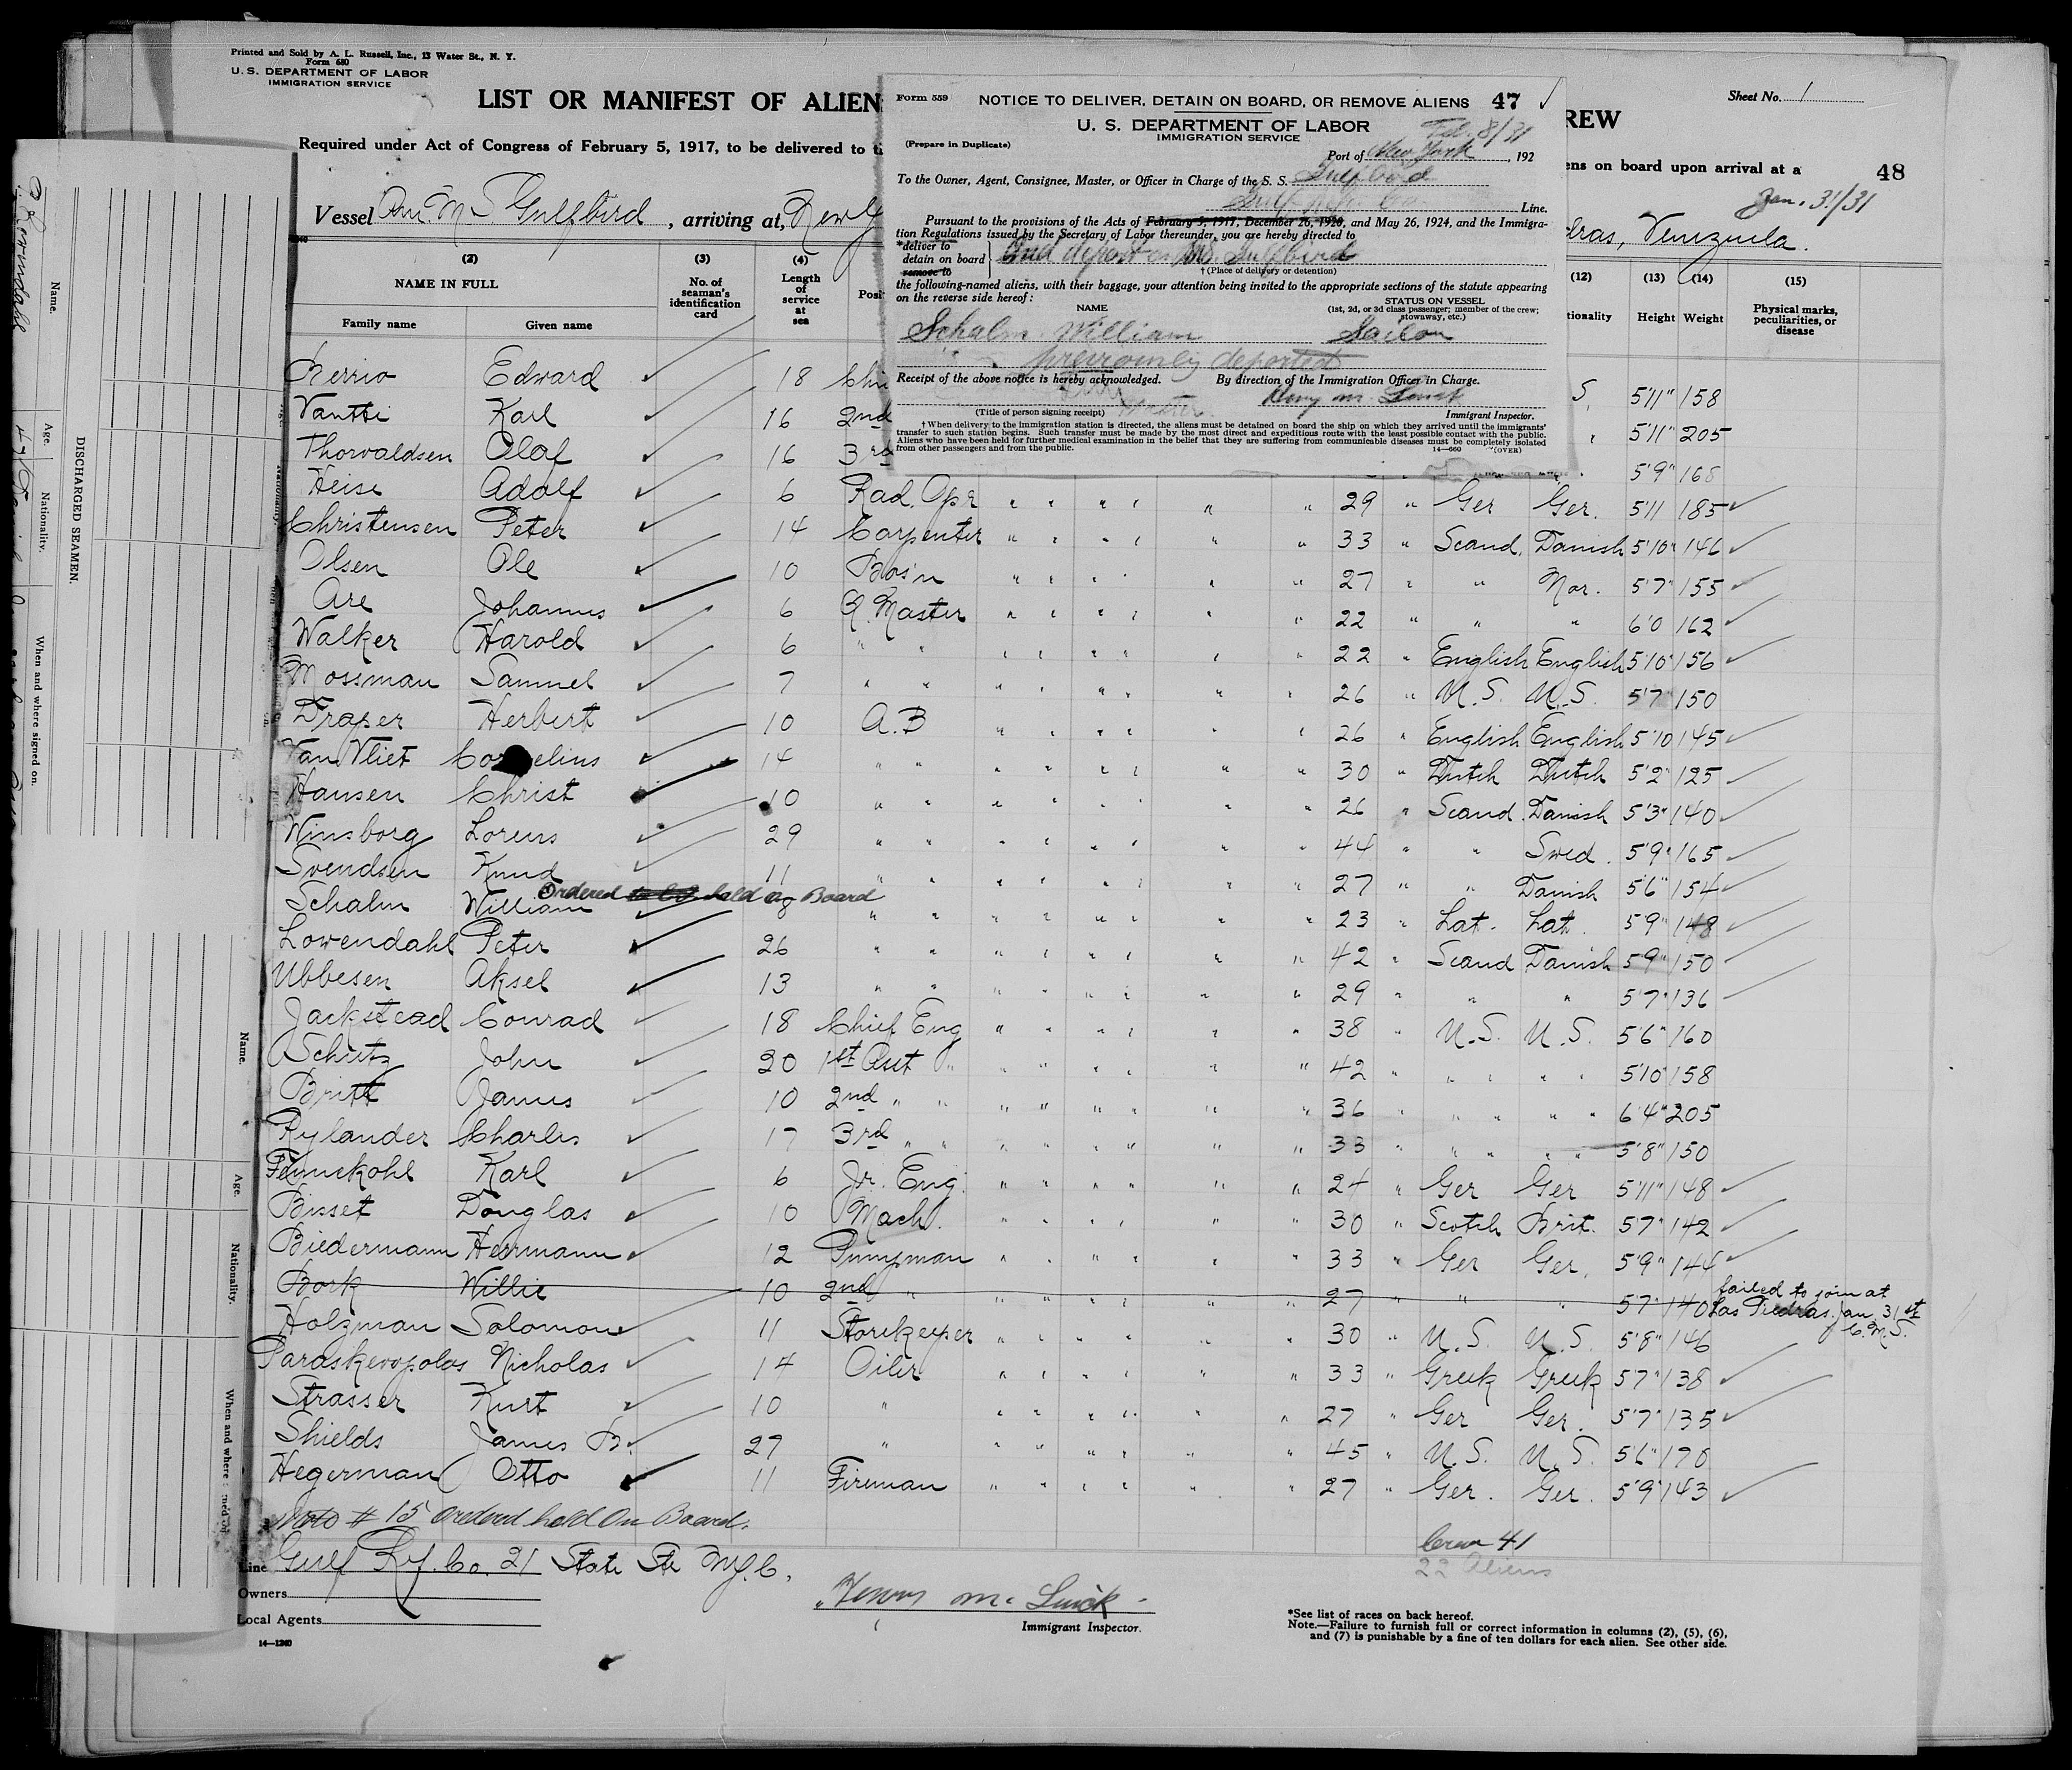 Printed and Sold by A. L. Russell, Inc., 13 Water St., N. Y.
Form 680
U. S. DEPARTMENT OF LABOR
IMMIGRATION SERVICE
LIST OR MANIFEST OF ALIEN
REW
Sheet No. 1
Required under Act of Congress of February 5, 1917, to be delivered to t
ens on board upon arrival at a
48
Jan. 31/31
Vessel Am. M. S. Gulfbird, arriving at, New Y
dras, Venezuela.
Form 559 NOTICE TO DELIVER, DETAIN ON BOARD, OR REMOVE ALIENS 47
U. S. DEPARTMENT OF LABOR
IMMIGRATION SERVICE
Feb. 8/31
(Prepare in Duplicate)
Port of New York, 192
To the Owner, Agent, Consignee, Master, or Officer in Charge of the S. S. Gulfbird
Line.
Pursuant to the provisions of the Acts of February 5, 1917, December 26, 1920, and May 26, 1924, and the Immigra-
tion Regulations issued by the Secretary of Labor thereunder, you are hereby directed to
*deliver to
detain on board
remove to
and deport on MS. Gulfbird
† (Place of delivery or detention)
the following-named aliens, with their baggage, your attention being invited to the appropriate sections of the statute appearing
on the reverse side hereof:
NAME
STATUS ON VESSEL
(1st, 2d, or 3d class passenger; member of the crew; stowaway, etc.)
Schalm William Sailor
previously deported
Receipt of the above notice is hereby acknowledged. By direction of the Immigration Officer in Charge.
Henry M. Luick
(Title of person signing receipt) Master Immigrant Inspector.
† When delivery to the immigration station is directed, the aliens must be detained on board the ship on which they arrived until the immigrants'
transfer to such station begins. Such transfer must be made by the most direct and expeditious route with the least possible contact with the public.
Aliens who have been held for further medical examination in the belief that they are suffering from communicable diseases must be completely isolated
from other passengers and from the public. 14—660 (OVER)
(2) (3) (4) (12) (13) (14) (15)
NAME IN FULL
Family name Given name
No. of seaman's identification card
Length of service at sea
Posi
tionality Height Weight
Physical marks, peculiarities, or disease
Edward 18 Chi S. 5'11" 158
Karl 16 2nd 5'11" 205
Thorvaldsen Olaf 16 3rd 5'9" 168
Heise Adolf 6 Rad. Opr " " " " " " 29 " Ger Ger. 5'11 185
Christensen Peter 14 Carpenter " " " " " " 33 " Scand. Danish 5'10" 146
Olsen Ole 10 Bos'n " " " " " " 27 " " Nor. 5'7" 155
Are Johannes 6 Q. Master " " " " " " 22 " " " 6'0 162
Walker Harold 6 " " " " " " " " 22 " English English 5'10" 156
Mossman Samuel 7 " " " " " " " " 26 " U.S. U.S. 5'7" 150
Draper Herbert 10 A.B " " " " " " 26 " English English 5'10 145
Van Vliet Cornelius 14 " " " " " " " " 30 " Dutch Dutch 5'2" 125
Hansen Christ 10 " " " " " " " " 26 " Scand. Danish 5'3" 140
Winsborg Lorens 29 " " " " " " " " 44 " " Swed. 5'9" 165
Svendsen Knud 11 " " " " " " " 27 " " Danish 5'6" 154
Ordered to be held on Board
Schalm William 8 " " " " " " " " 23 " Lat. Lat. 5'9" 148
Lowendahl Peter 26 " " " " " " " " 42 " Scand Danish 5'9" 150
Ubbesen Aksel 13 " " " " " " " " 29 " " " 5'7" 136
Jackstead Conrad 18 Chief Eng " " " " " " 38 " U.S. U.S. 5'6" 160
Schutz John 20 1st Asst " " " " " " " 42 " " " " " 5'10" 158
Britt James 10 2nd " " " " " " " " 36 " " " " " 6'4" 205
Rylander Charles 17 3rd " " " " " " " " 33 " " " " " 5'8" 150
Fennekohl Karl 6 Jr. Eng. " " " " " " 24 " Ger Ger 5'11" 148
Bisset Douglas 10 Mach. " " " " " " 30 " Scotch Brit. 5'7" 142
Biedermann Herrmann 12 Pumpman " " " " " " 33 " Ger Ger. 5'9" 144
Bork Willie 10 2nd " " " " " " " 27 " " " 5'7" 140 failed to join at
Las Piedras. Jan. 31st
C. M. S.
Holzman Solomon 11 Storekeeper " " " " " " 30 " U.S. U.S. 5'8" 146
Paraskevopolos Nicholas 14 Oiler " " " " " " 33 " Greek Greek 5'7" 138
Strasser Kurt 10 " " " " " " " 27 " Ger Ger. 5'7" 135
Shields James B. 27 " " " " " " " 45 " U.S. U.S. 5'6" 170
Hegerman Otto 11 Fireman " " " " " " 27 " Ger. Ger. 5'9" 143
Note # 15 ordered held on Board.
Crew 41
22 Aliens
Line Gulf Rf. Co. 21 State St N.Y.C.
Owners
Local Agents
14—1240
Henry M. Luick
Immigrant Inspector.
*See list of races on back hereof.
Note.—Failure to furnish full or correct information in columns (2), (5), (6),
and (7) is punishable by a fine of ten dollars for each alien. See other side.
DISCHARGED SEAMEN.
Name. Age. Nationality. When and where signed on.
P. Lowendahl 42 Danish
Name. Age. Nationality. When and where